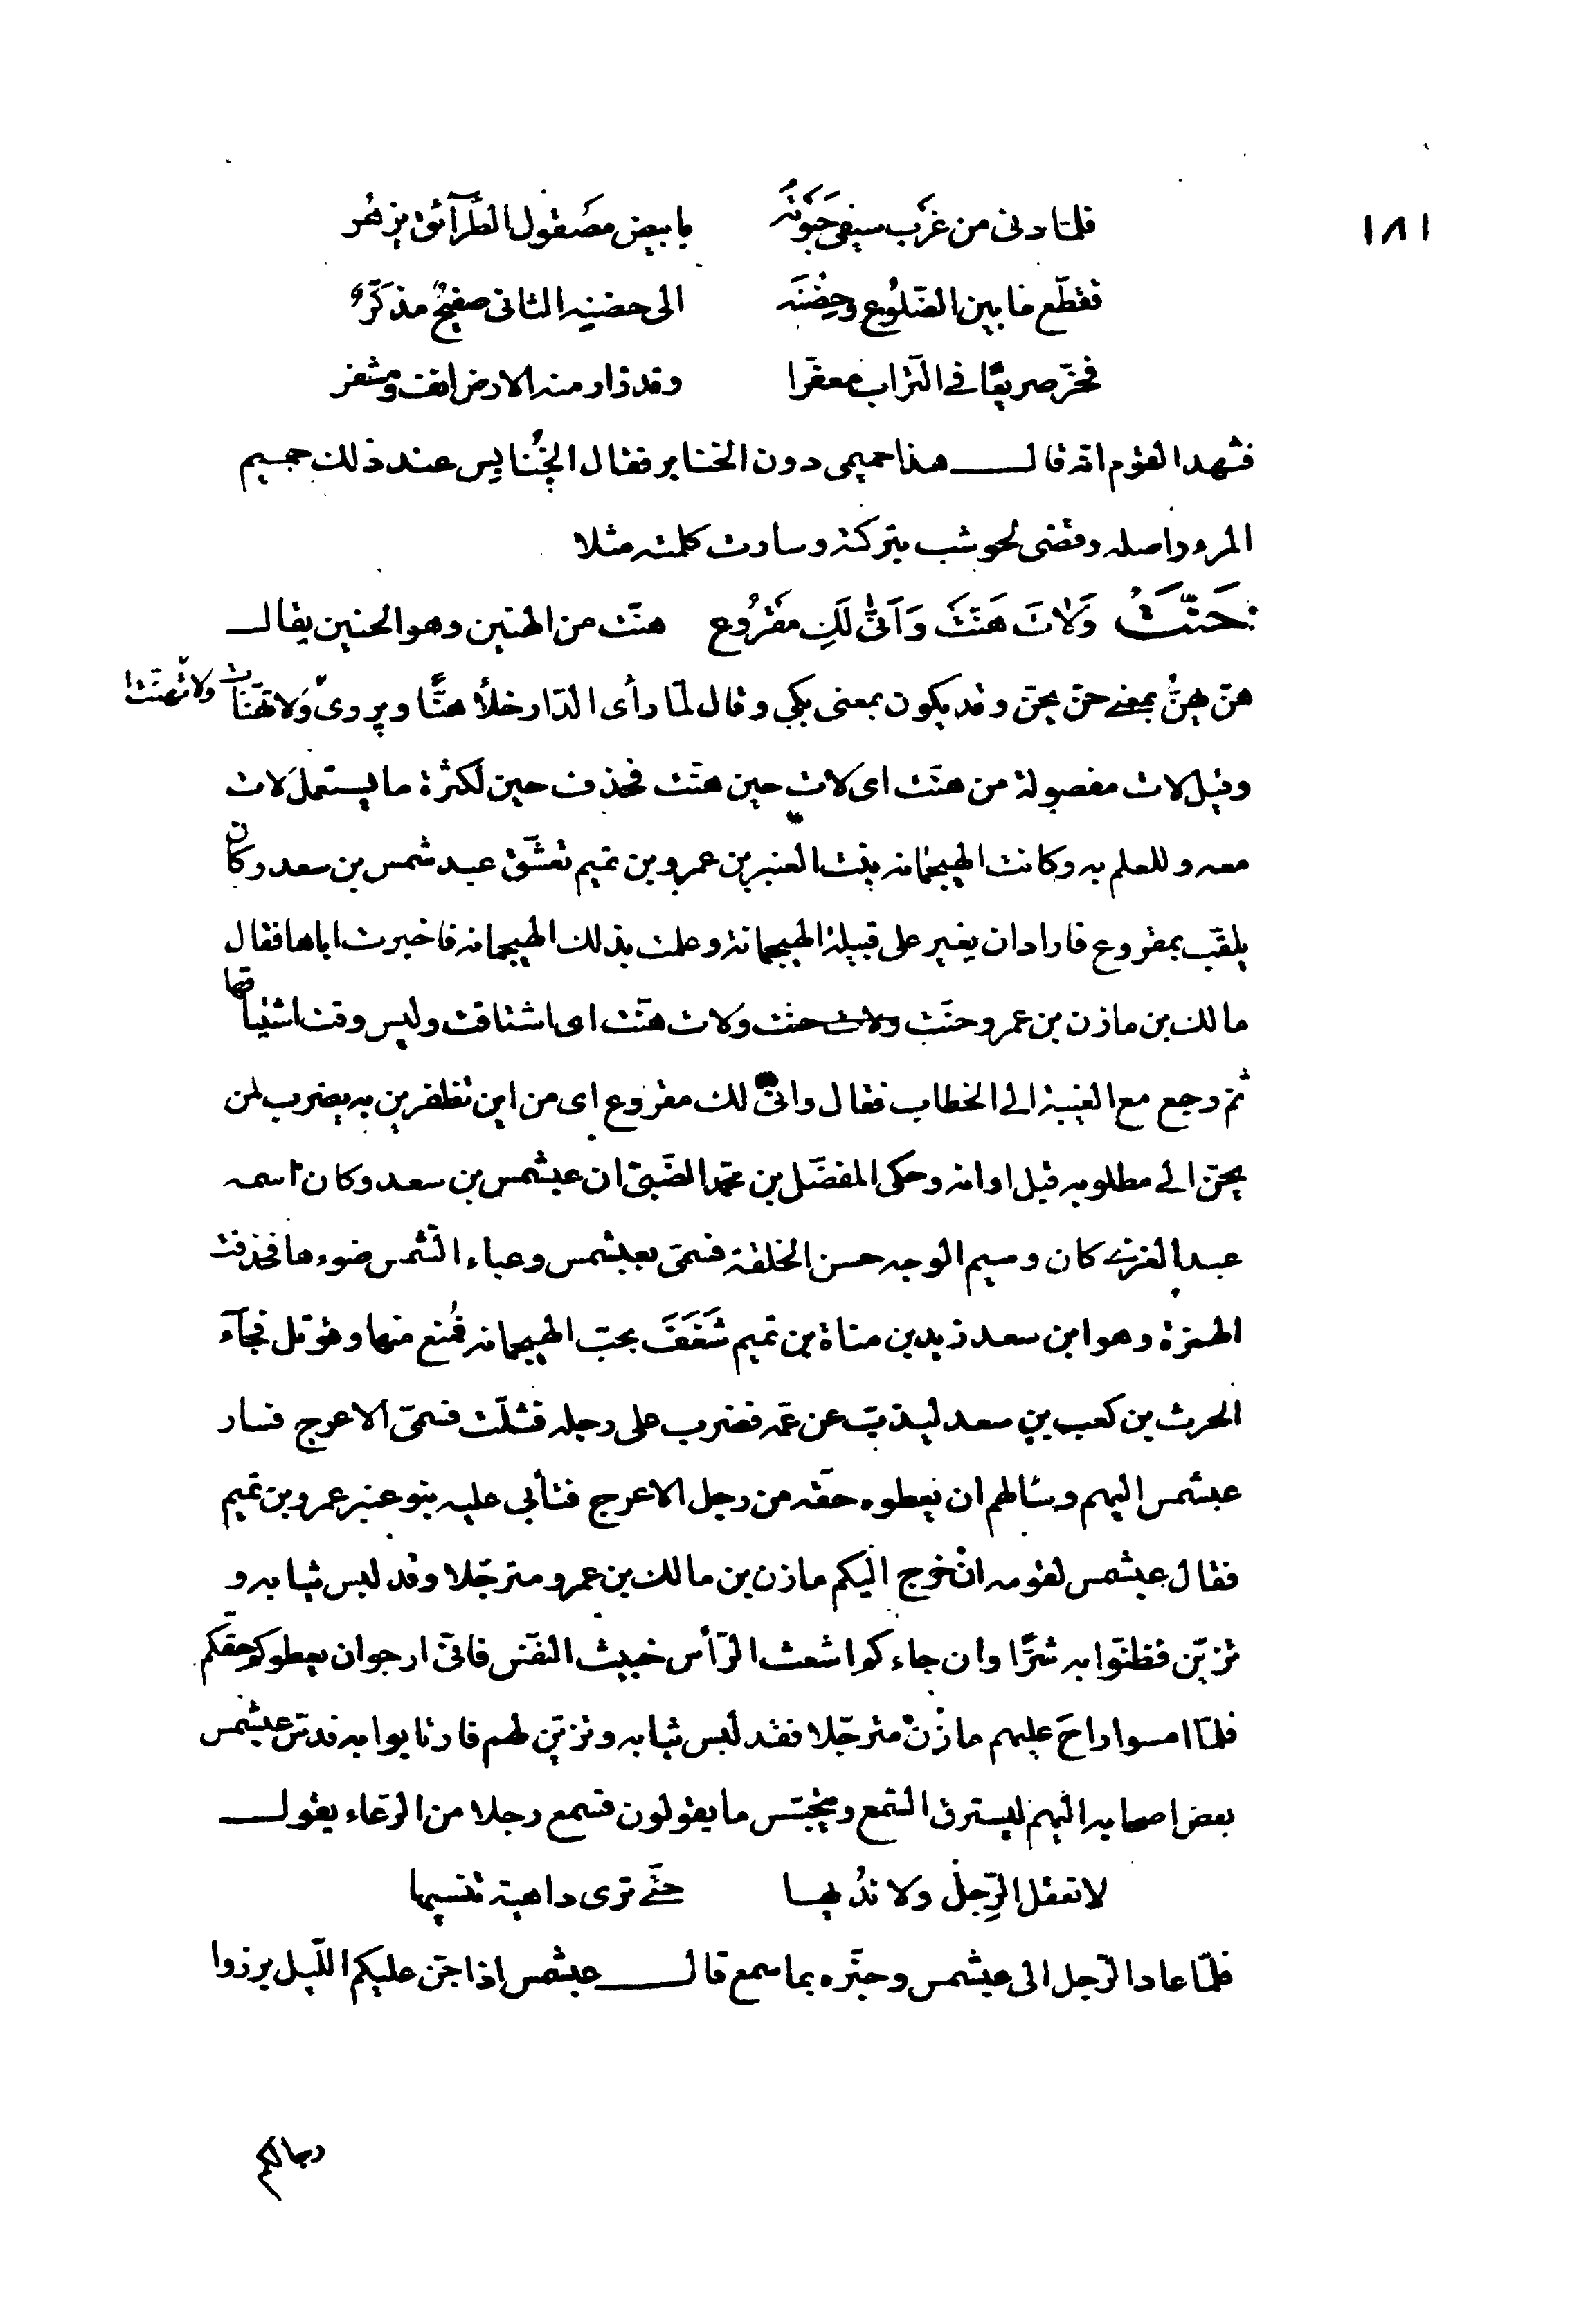 ١٨١
فلمّا دنى من غَرْب سيفى حَبَوْتُهُ بابيض مصْقول الطَّرآئق يزهُر
فقطّع ما بين الضّلُوع وحِضْنَه الى حضنيه الثانى صفيحٌ مذكَّرٌ
فخرّ صريعًا فى التّراب معفّرا وقد زار منه الارض انف ومشفر
فشهد القوم انه قال هذا حميمى دون الخنابر فقال الخُنابس عند ذلك حميم
المرء واصله وقضى لحوشب بتركته وسارت كلمته مثلا
حَنَّتْ وَلاٰتَ هَنَّتْ وَاَنّٰى لَكِ مَقْرُوع هنّت من الهنين وهو الحنين يقال
هنّ يهنُّ بمعنى حنّ يحنّ وقد يكون بمعنى بكى وقال لمّا رأى الدّار خلأ هنًّا ويروى وَلاتَهَنّات ولاتهنّتا
وقيل لات مفصولة من هنّت اى لات حين هنّت فحذف حين لكثرة ما يستعمل لات
معه وللعلم به وكانت الهيجمانه بنت العنبر بن عمرو بن تميم تعشّق عبد شمس بن سعد وكان
يلقّب بمقروع فاراد ان يغير على قبيلة الهيجمانة وعلمت بذلك الهيجمانه فاخبرت اباها فقال
مالك بن مازن بن عمرو حنّت ولات حنت ولات هنّت اى اشتاقت وليس وقت اشتياقها
ثم رجع مع الغيبة الى الخطاب فقال وانّى لك مقروع اى من اين تظفرين به يضرب لمن
يحنّ الى مطلوبه قبل اوانه وحكى المفضّل بن محمّد الضّبىّ ان عبشمس بن سعد وكان اسمه
عبد العزى كان وسيم الوجه حسن الخلقة فسمّى بعبشمس وعباء الشّمس ضوءها فحذفت
الهمزة وهو ابن سعد زيد بن مناة بن تميم شَغَفَ بحبّ الهيجمانه فمُنع منها وقوتل فجآء
الحرث بن كعب بن سعد ليذبّ عن عمّه فضرب على رجله فشلّت فسمّى الاعرج فسار
عبشمس اليهم وسألهم ان يعطوه حقّه من رجل الاعرج فتأبى عليه بنو عنبر عمرو بن تميم
فقال عبشمس لقومه ان خرج اليكم مازن بن مالك بن عمرو مترجّلا وقد لبس ثيابه و
تزيّن فظنّوا به شرًّا وان جاءكم اشعث الرّأس خبيث النّفس فانّى ارجو ان يعطوكم حقّكم
فلمّا امسوا راحَ عليهم مازن مترجّلا فقد لبس ثيابه وتزيّن لهم فارتابوا به فدسّ عبشمس
بعض اصحابه اليهم ليسترق السّمع ويتجسّس ما يقولون فسمع رجلا من الرّعاء يقول
لا نعقل الرِّجل ولا نديُها حتّى ترى داهية تنسيها
فلمّا عاد الرّجل الى عبشمس وخبّره بما سمع قال عبشمس اذا جنّ عليكم اللّيل برزوا
رحالكم